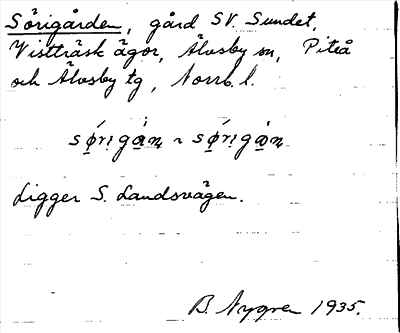 Sörigården, gård SV. Sundet,
Vistträsk ägor, Älvsby sn, Piteå
och Älvsby tg, Norrb. l.
sø̀rigán ~ sø̀rigán
Ligger S. Landsvägen.
B. Nygren 1935.